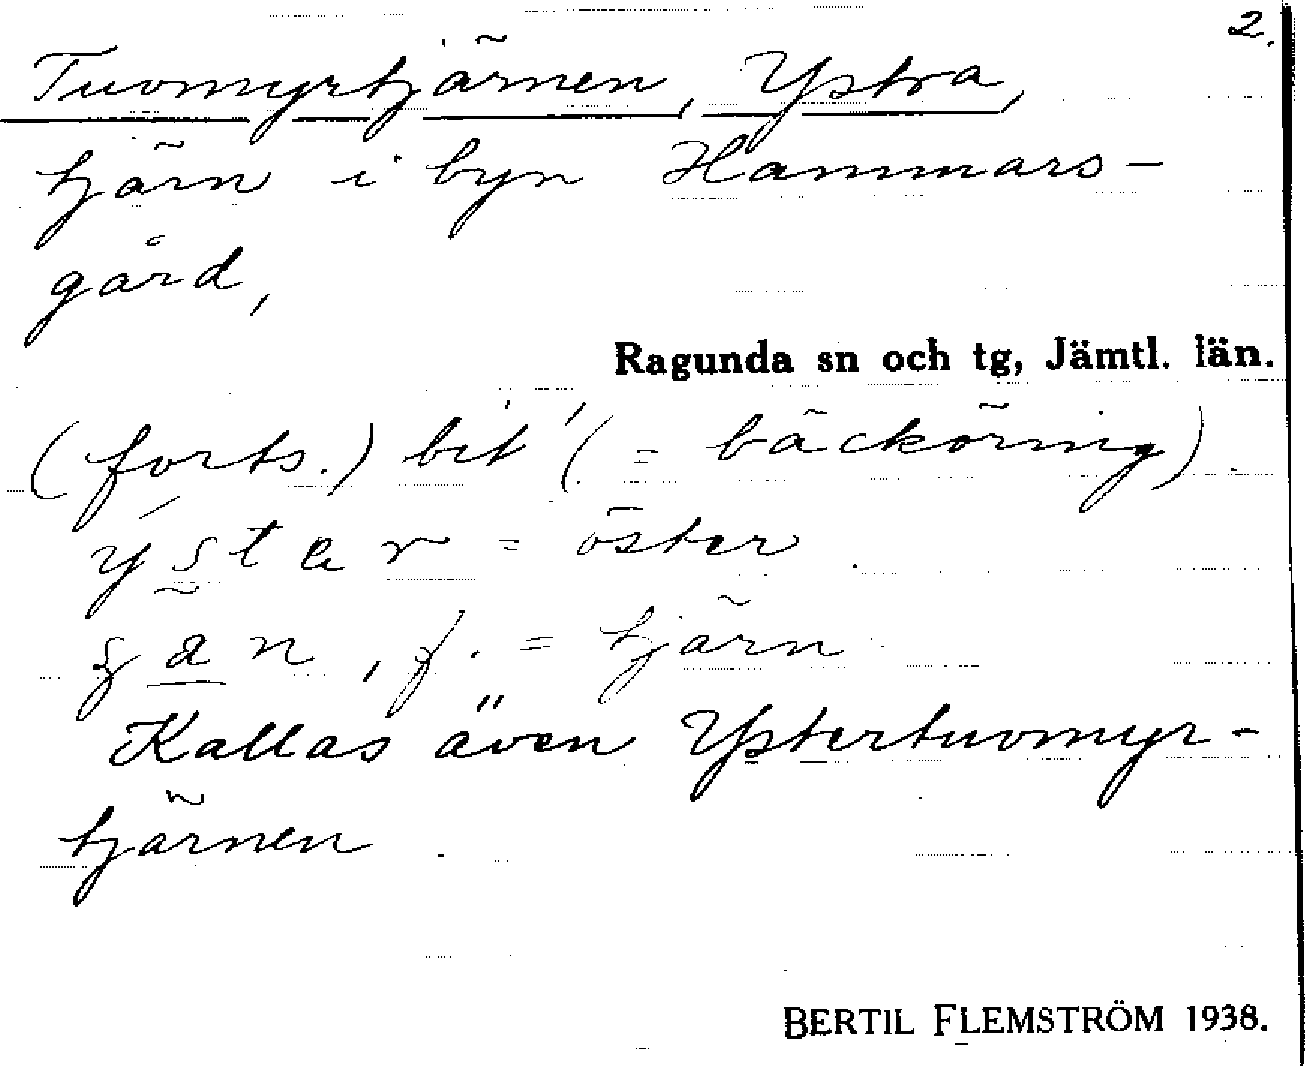 2.
Tuvomyrtjärnen, Ystra,
tjärn i byn Hammars-
gård,
Ragunda sn och tg, Jämtl. län.
(forts.) bit' (= bäcköring)
ýster = öster
ʒa̲n, f. = tjärn
Kallas även Ystertuvomyr-
tjärnen
BERTIL FLEMSTRÖM 1938.